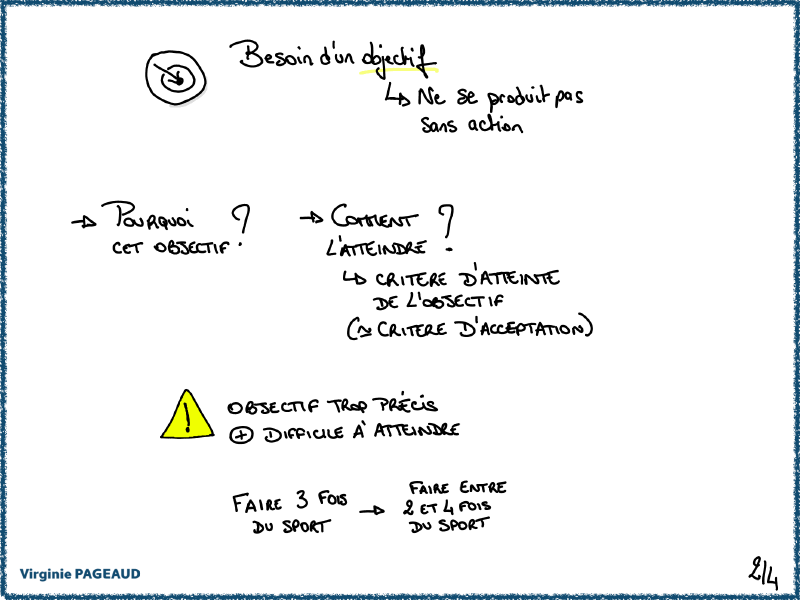 Besoin d'un objectif
↳ Ne se produit pas
sans action
→ POURQUOI
CET OBJECTIF ?
→ COMMENT
L'ATTEINDRE ?
↳ CRITERE D'ATTEINTE
DE L'OBJECTIF
(≃ CRITERE D'ACCEPTATION)
!
OBJECTIF TROP PRÉCIS
⊕ DIFFICILE À ATTEINDRE
FAIRE 3 FOIS
DU SPORT
→ FAIRE ENTRE
2 ET 4 FOIS
DU SPORT
Virginie PAGEAUD
2/4